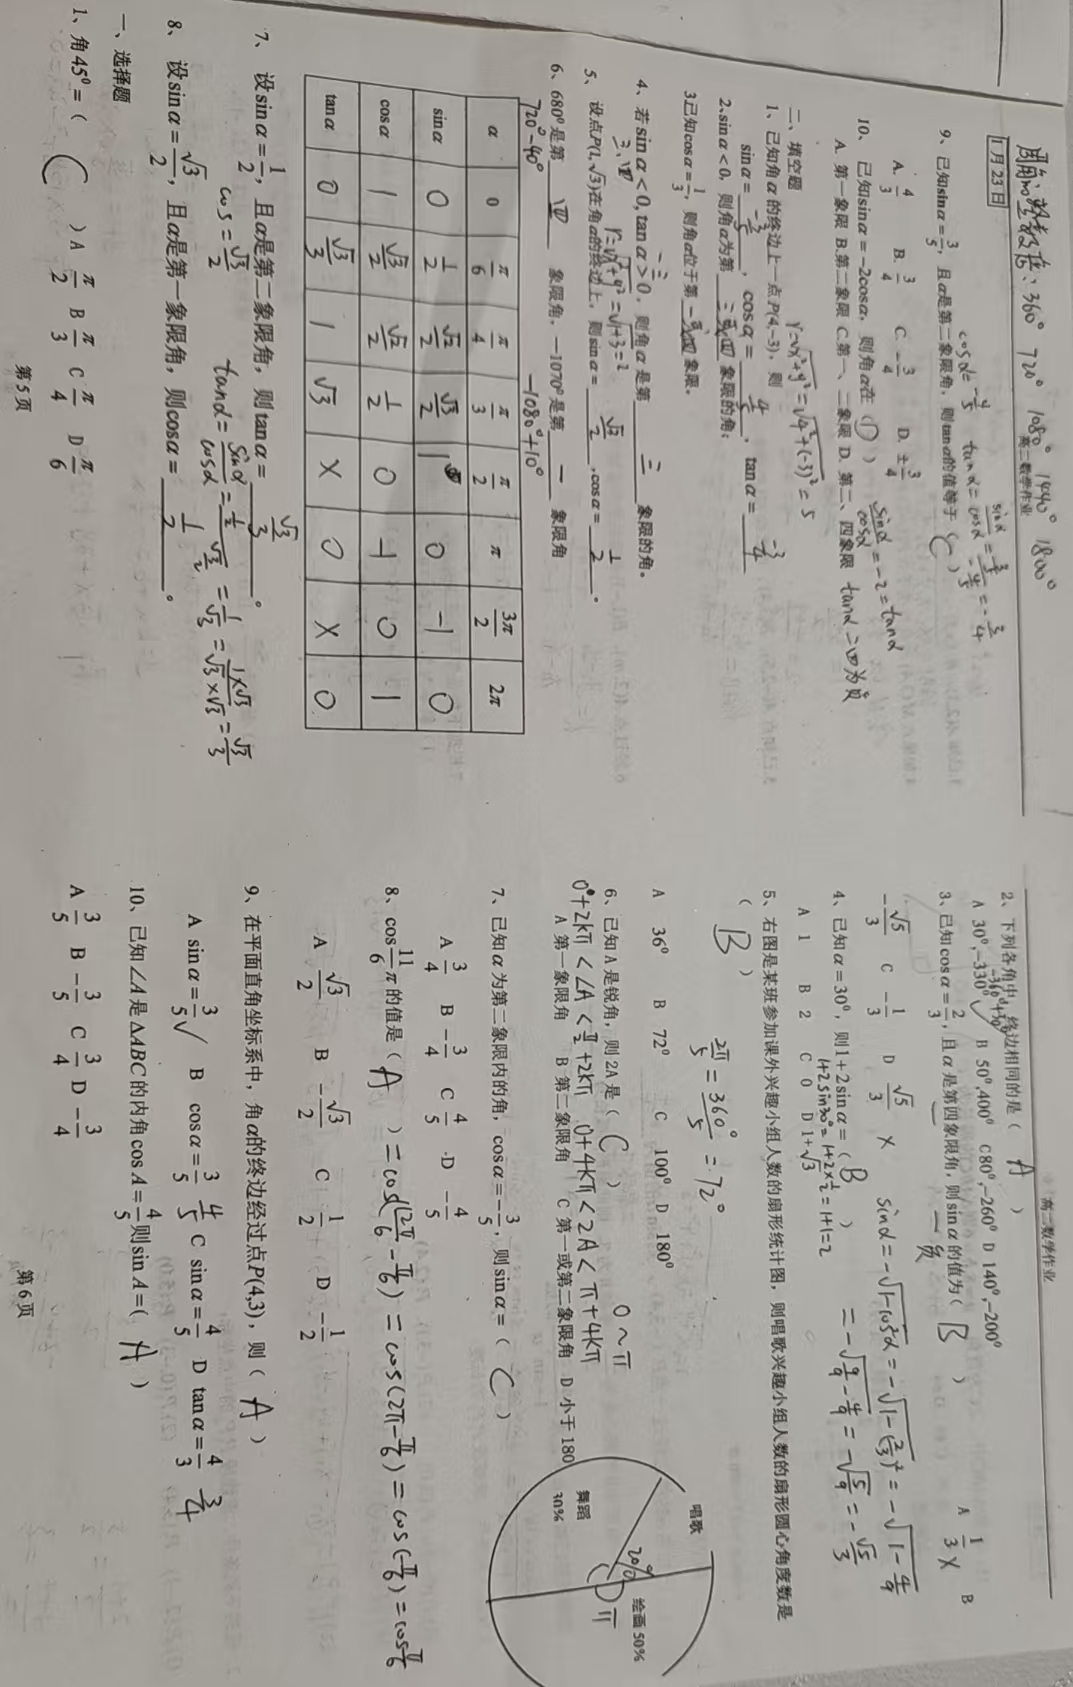 周角的整数倍：360° 720° 1080° 1440° 1800°
高二数学作业
1月23日
9、已知sinα=3/5，且α是第二象限角，则tanα的值等于（ C ）
cosα=-4/5 tanα=sinα/cosα=3/5/-4/5=-3/4
A. 4/3 B. 3/4 C. -3/4 D. ±3/4
10、已知sinα=-2cosα，则角α在（ D ）
sinα/cosα=-2=tanα
A. 第一象限 B.第二象限 C.第一、二象限 D. 第二、四象限 tanα二四为负
二、填空题
r=√x²+y²=√4²+(-3)²=5
1、已知角α的终边上一点P(4,-3)，则
sinα=-3/5，cosα=4/5，tan α=-3/4
2、sinα<0，则角α为第三或四象限的角；
3已知cosα=1/3，则角α位于第一或四象限.
4、若sinα<0,tanα>0，则角α是第 三 象限的角。
三、四 一三
r=√x²+y²=√1+3=2
5、设点P(1,√3)在角α的终边上，则sinα=√3/2，cosα=1/2。
6、680°是第 四 象限角，−1070°是第 一 象限角
720°-40° -1080°+10°
α 0 π/6 π/4 π/3 π/2 π 3π/2 2π
sinα 0 1/2 √2/2 √3/2 1 0 -1 0
cosα 1 √3/2 √2/2 1/2 0 -1 0 1
tanα 0 √3/3 1 √3 × 0 × 0
7、设sinα=1/2，且α是第二象限角，则tanα=√3/3。
cos=√3/2 tanα=sinα/cosα=1/2/√3/2=1/√3=1×√3/√3×√3=√3/3
8、设sinα=√3/2，且α是第一象限角，则cosα=1/2。
一、选择题
1、角45°=（ C ）A π/2 B π/3 C π/4 D π/6
第5页
高二数学作业
2、下列各角中，终边相同的是（ A ）
-360°+30°
A 30°,-330° ✓ B 50°,400° C80°,-260° D 140°,-200°
3、已知cosα=2/3，且α是第四象限角，则sinα的值为（ B ） A 1/3 × B
一 负
-√5/3 C -1/3 D √5/3 × sinα=-√1-cos²α=-√1-(2/3)²=-√1-4/9
=-√9/9-4/9=-√5/9=-√5/3
4、已知α=30°，则1+2sinα=（ B ）
A 1 B 2 C 0 D 1+√3
1+2sin30°=1+2×1/2=1+1=2
5、右图是某班参加课外兴趣小组人数的扇形统计图，则唱歌兴趣小组人数的扇形圆心角度数是
（ B ）
2π/5=360°/5=72°
A 36° B 72° C 100° D 180°
唱歌
20%
绘画50%
π
舞蹈
30%
6、已知A是锐角，则2A是（ C ） 0～π
0°+2kπ<∠A<π/2+2kπ 0+4kπ<2A<π+4kπ
A 第一象限角 B 第二象限角 C 第一或第二象限角 D 小于180
7、已知α为第二象限内的角，cosα=-3/5，则sinα=（ C ）
A 3/4 B -3/4 C 4/5 D -4/5
8、cos11/6π的值是（ A ）=cos(12π/6-π/6)=cos(2π-π/6)=cos(-π/6)=cosπ/6
A √3/2 B -√3/2 C 1/2 D -1/2
9、在平面直角坐标系中，角α的终边经过点P(4,3)，则（ A ）
A sinα=3/5 √ B cosα=3/5 4/5 C sinα=4/5 D tanα=4/3 3/4
10、已知∠A是ΔABC的内角cosA=4/5则sinA=( A )
A 3/5 B -3/5 C 3/4 D -3/4
第6页